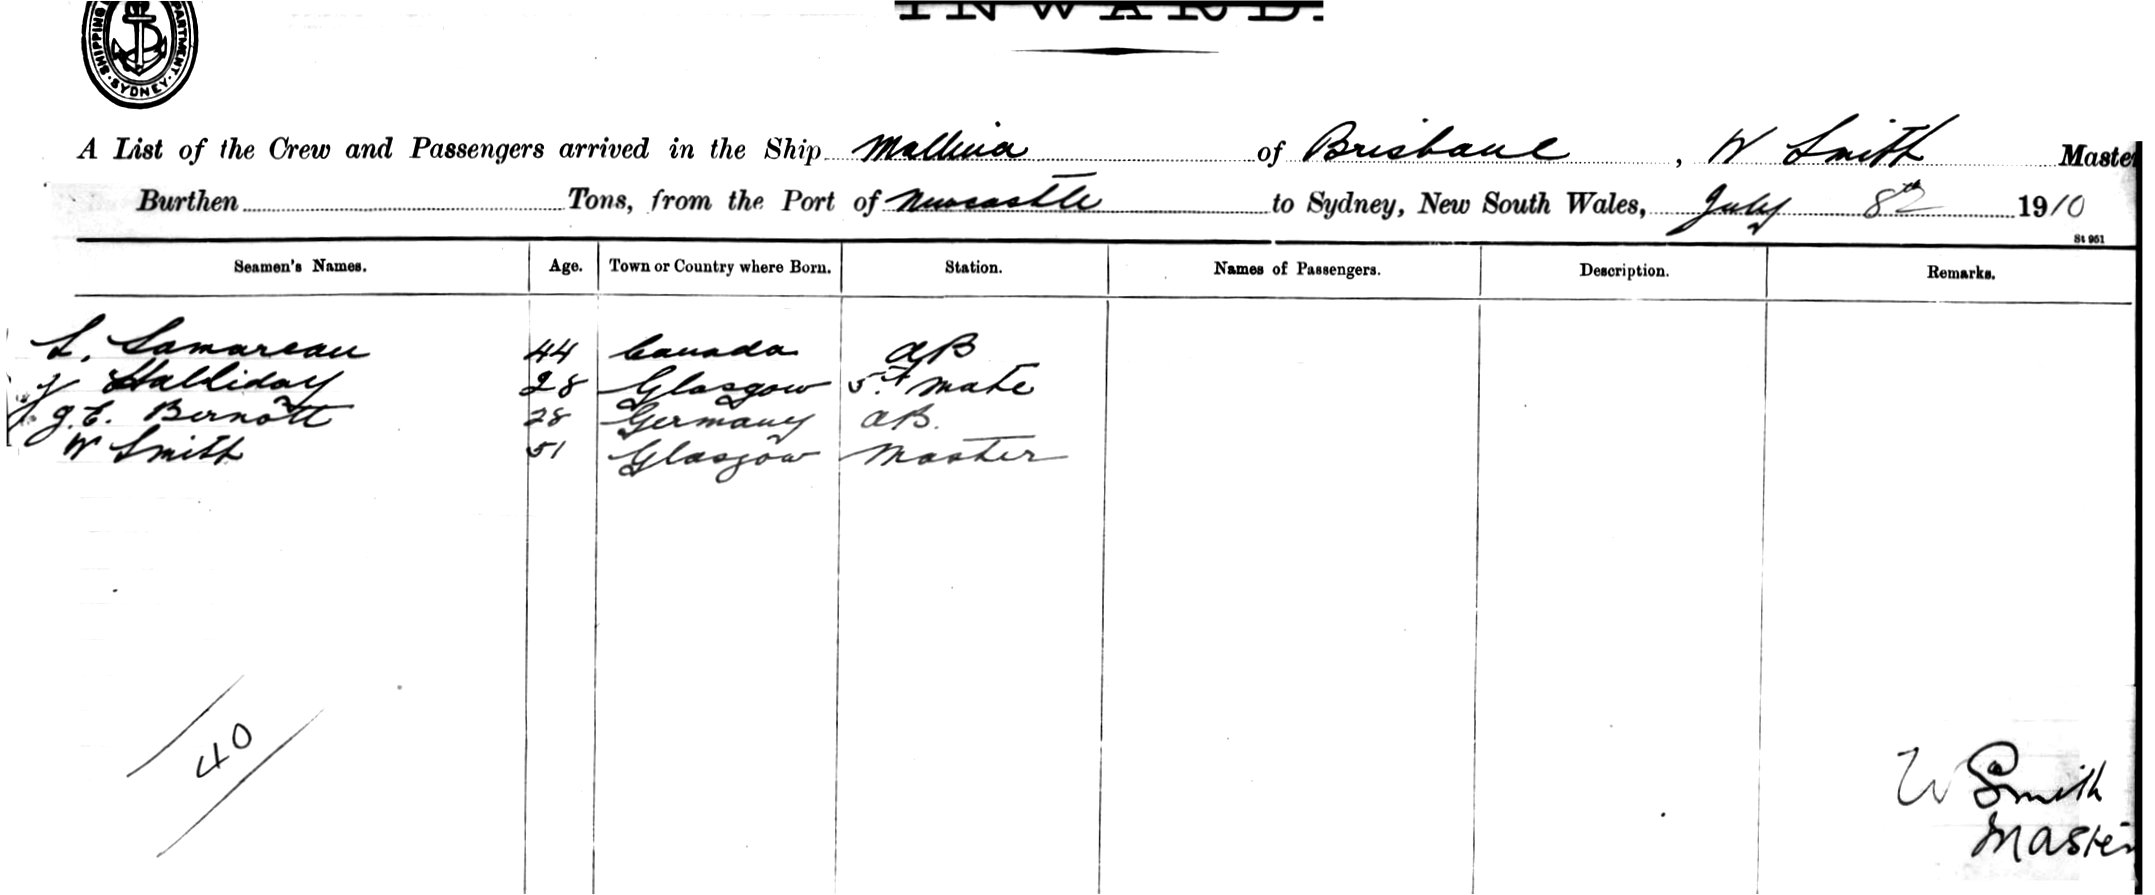 SHIPPING DEPARTMENT SYDNEY
INWARD.
A List of the Crew and Passengers arrived in the Ship Mallina of Brisbane, W Smith Master
Burthen Tons, from the Port of Newcastle to Sydney, New South Wales, July 8th 1910
St 961
Seamen's Names. Age. Town or Country where Born. Station. Names of Passengers. Description. Remarks.
L. Lamareau 44 Canada AB
J Halliday 28 Glasgow 5th mate
J. E. Bernott 28 Germany AB.
W Smith 51 Glasgow Master
40
W Smith
Master